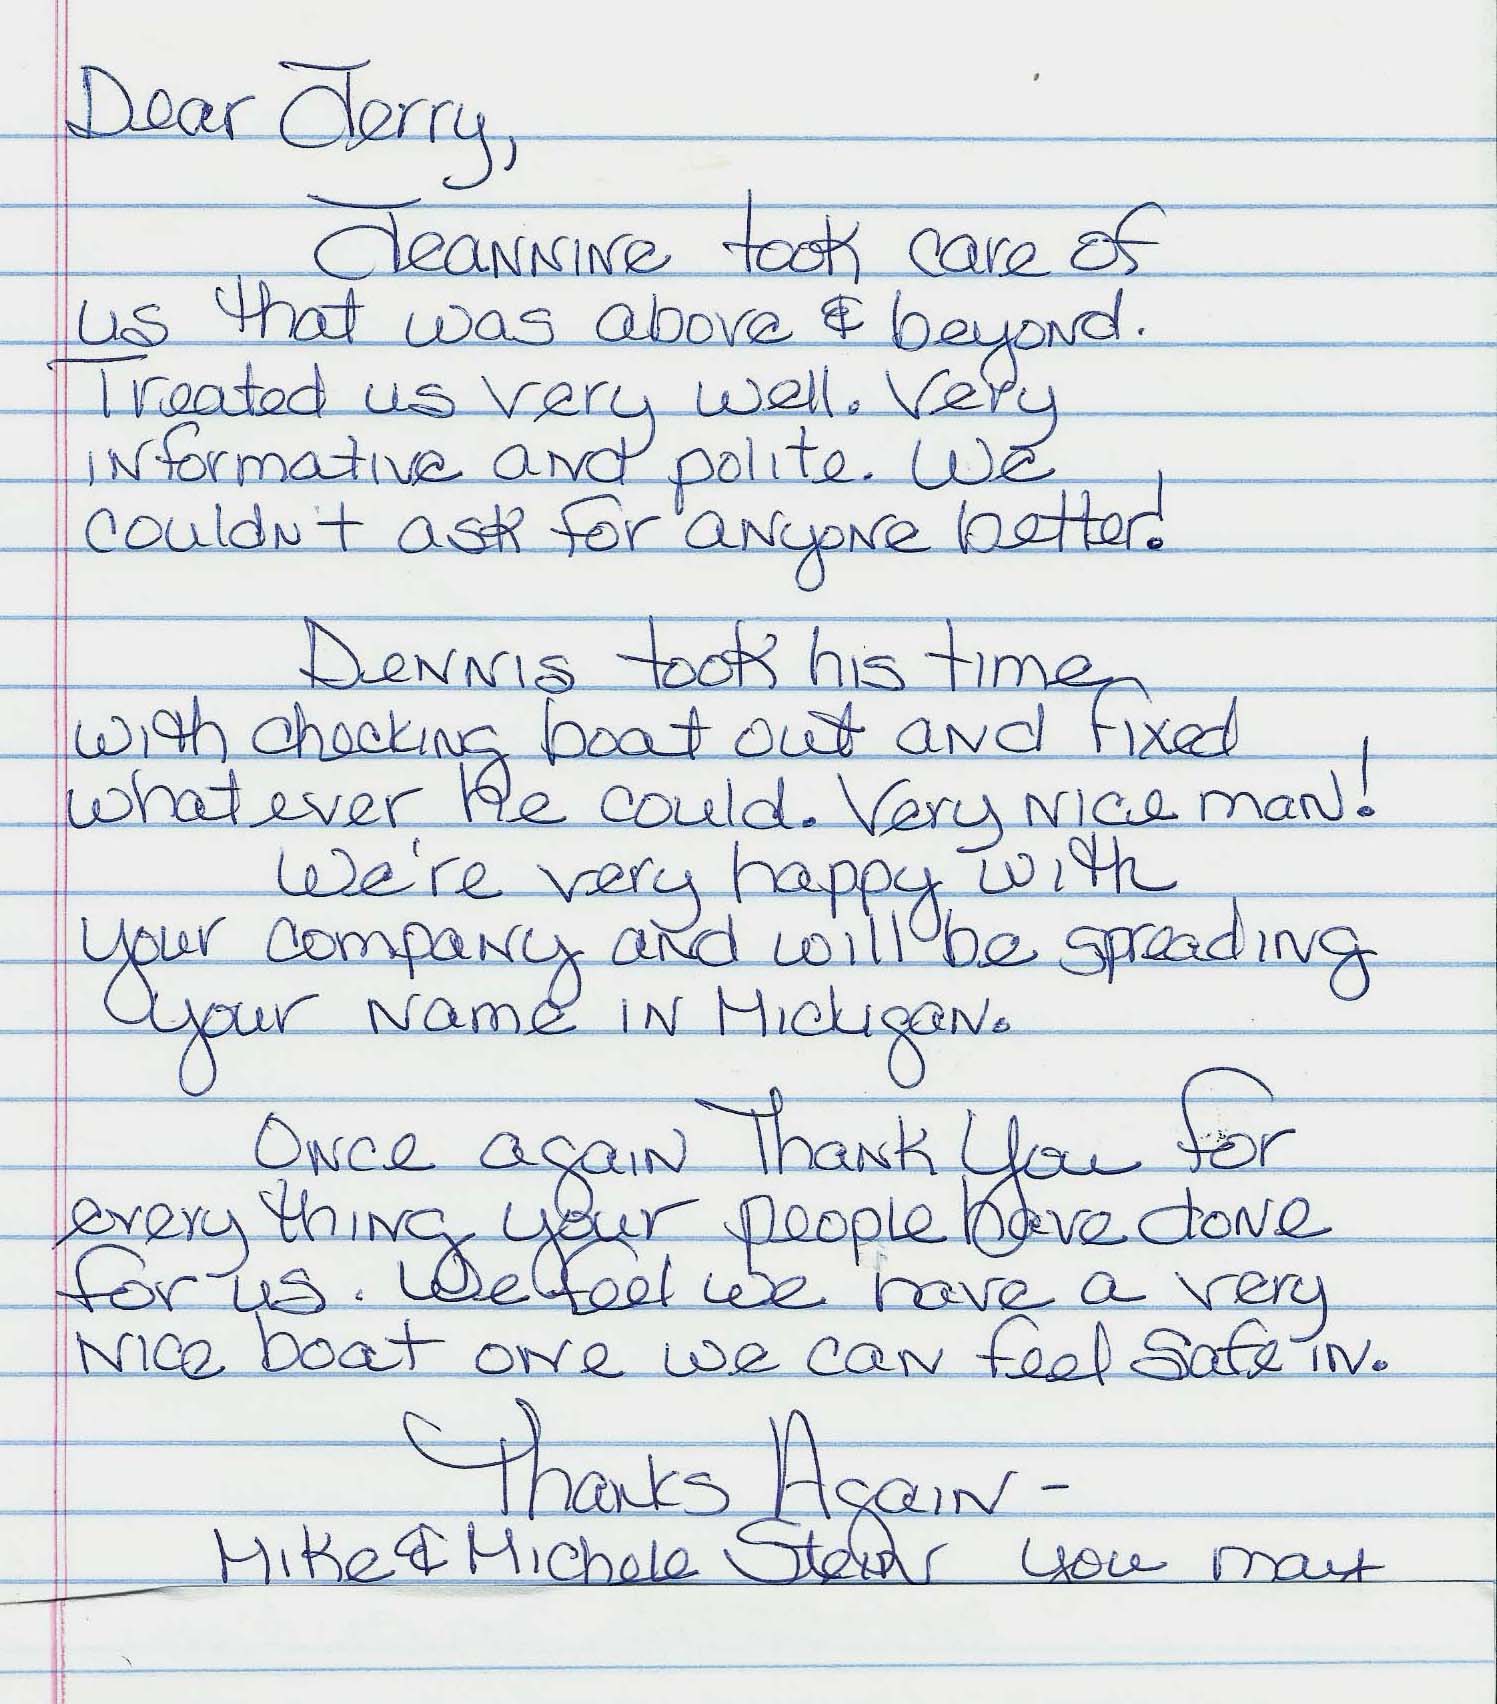 Dear Jerry,
Jeannine took care of
us that was above & beyond.
Treated us very well. Very
informative and polite. We
couldn't ask for anyone better!
Dennis took his time
with checking boat out and fixed
whatever he could. Very nice man!
We're very happy with
your company and will be spreading
your name in Michigan.
Once again Thank You for
everything your people have done
for us. We feel we have a very
nice boat one we can feel safe in.
Thanks Again -
Mike & Michele you